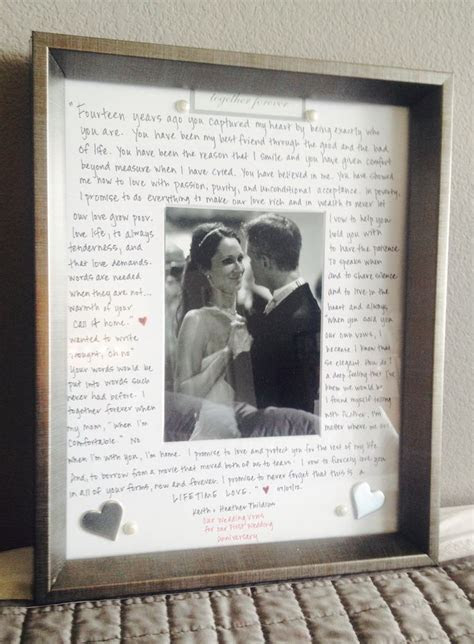 together forever
"Fourteen years ago you captured my heart by being exactly who
you are. You have been my best friend through the good and the bad
of life. You have been the reason that I smile and you have given comfort
beyond measure when I have cried. You have believed in me. You have showed
me how to love with passion, purity, and unconditional acceptance. In poverty,
I promise to do everything to make our love rich and in wealth to never let
our love grow poor. I vow to help you
love life, to always hold you with
tenderness, and to have the patience
that love demands. To speak when
words are needed and to share silence
when they are not... and to love in the
warmth of your heart and always
call it home." "When you said you
wanted to write our own vows, I
thought, "oh no" because I know that
Your words would be so elegant. How do I
put into words such a deep feeling that I've
never had before. I knew we would be
together forever when I found myself telling
my mom, "when I'm
comfortable." No matter where we are
when I'm with you, I'm home. I promise to love and protect you for the rest of my life.
And, to borrow from a movie that moved both of us to tears: I vow to fiercely love you
in all of your forms, now and forever. I promise to never forget that this is a
LIFETIME LOVE."
Keith & Heather
Our Wedding Vows
for our First Wedding
Anniversary